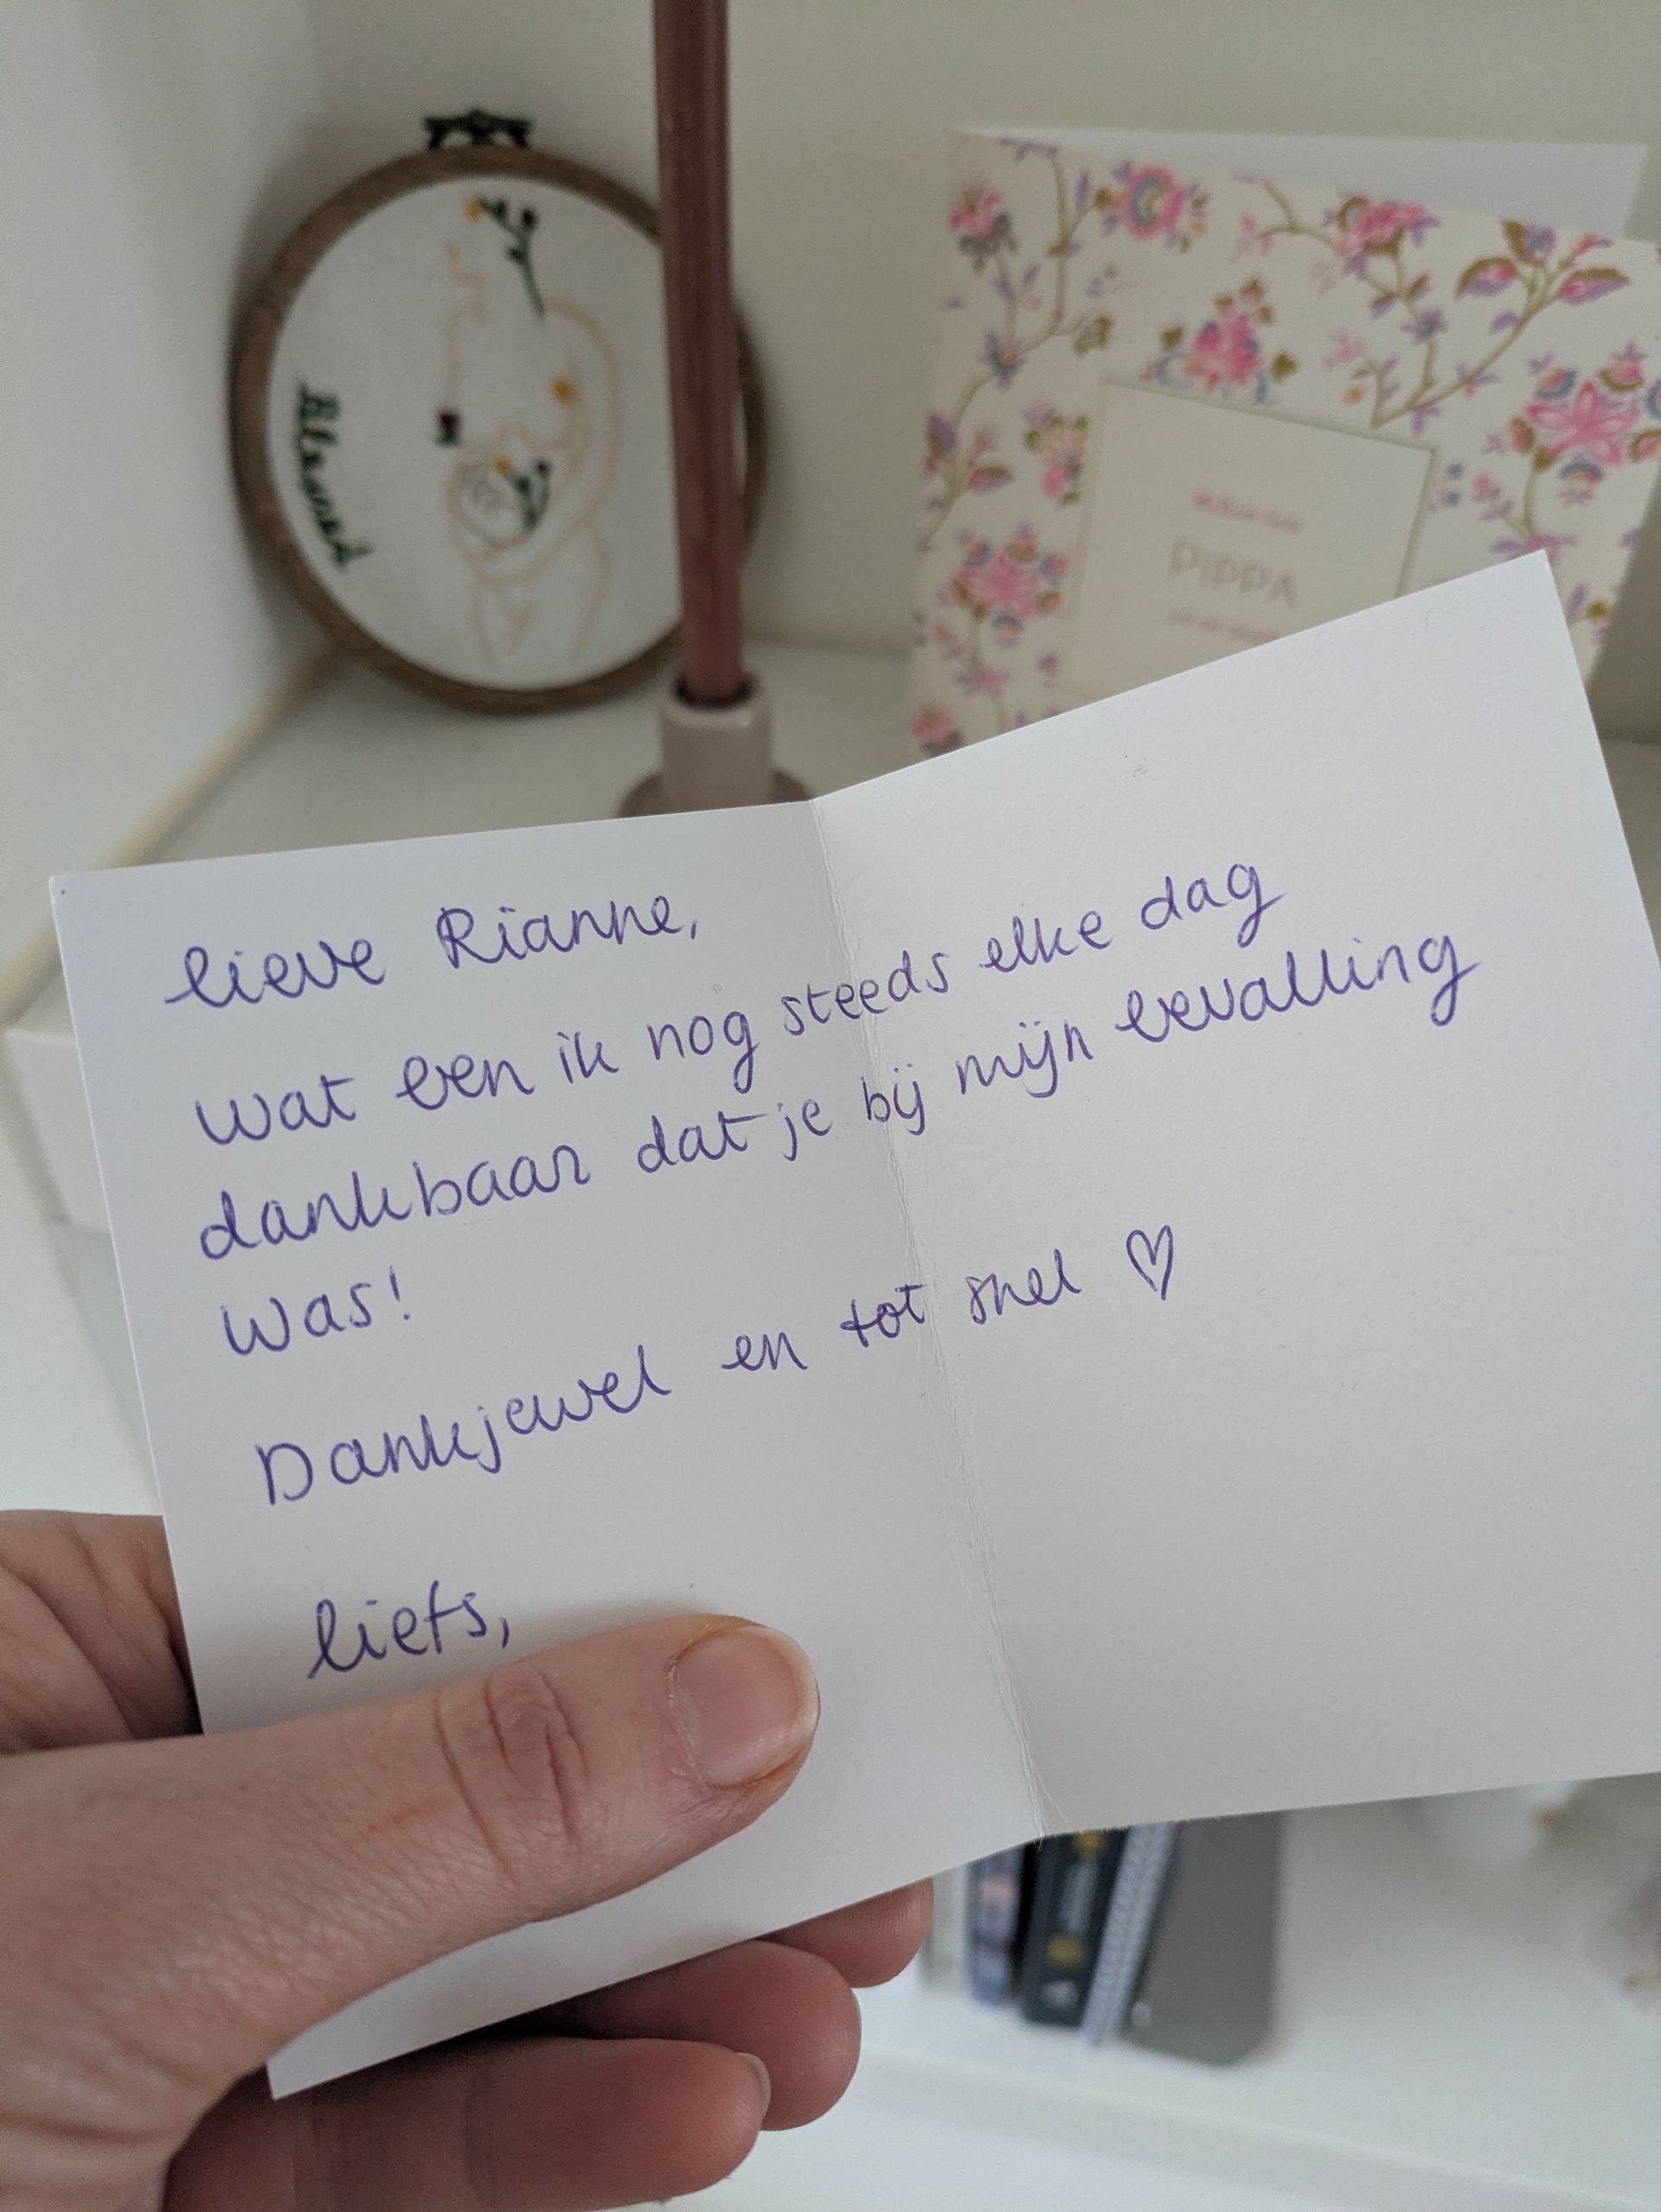 Blessed
PIPPA
lieve Rianne,
wat ben ik nog steeds elke dag
dankbaar dat je bij mijn bevalling
was!
Dankjewel en tot snel ♡
liefs,